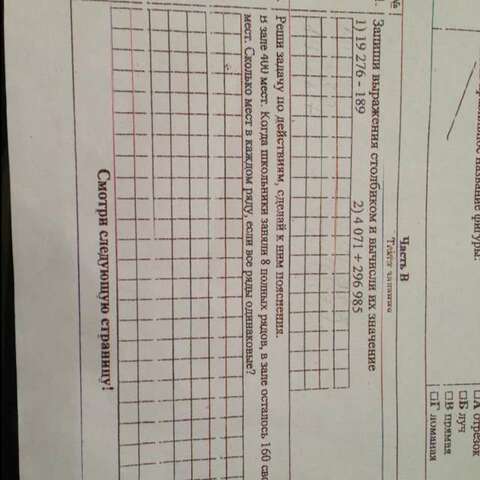 название фигуры.
А отрезок
Б луч
В прямая
Г ломаная
Часть В
№
Текст задания
1. Запиши выражения столбиком и вычисли их значение
1) 19 276 – 189 2) 4 071 + 296 985
Реши задачу по действиям, сделай к ним пояснения.
В зале 400 мест. Когда школьники заняли 8 полных рядов, в зале осталось 160 сво
мест. Сколько мест в каждом ряду, если все ряды одинаковые?
Смотри следующую страницу!